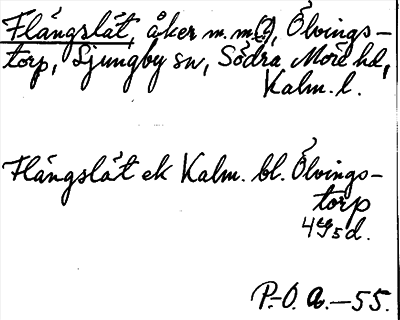 Flängslät, åker m.m., Ölvings-
torp, Ljungby sn, Södra Möre hd,
Kalm. l.
Flängslät ek Kalm. bl. Ölvings-
torp
5d.
P.-O. A.—55.